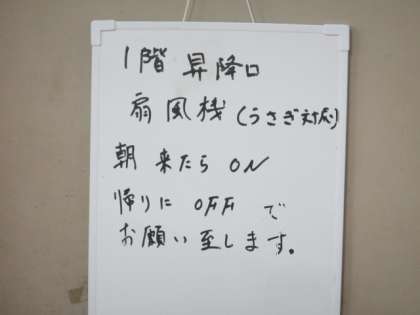 1階 昇降口
扇風機 (うさぎ対応)
朝 来たら ON
帰りに OFF で
お願い至します。